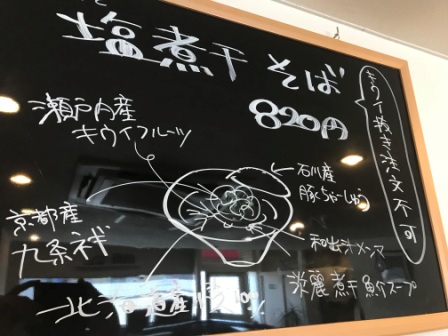 塩煮干そば
820円
キウイ抜き注文不可
瀬戸内産
キウイフルーツ
石川産
豚ちゃーしゅう
京都産
九条ネギ
和出汁メンマ
淡麗煮干魚介スープ
北海道産小麦100%